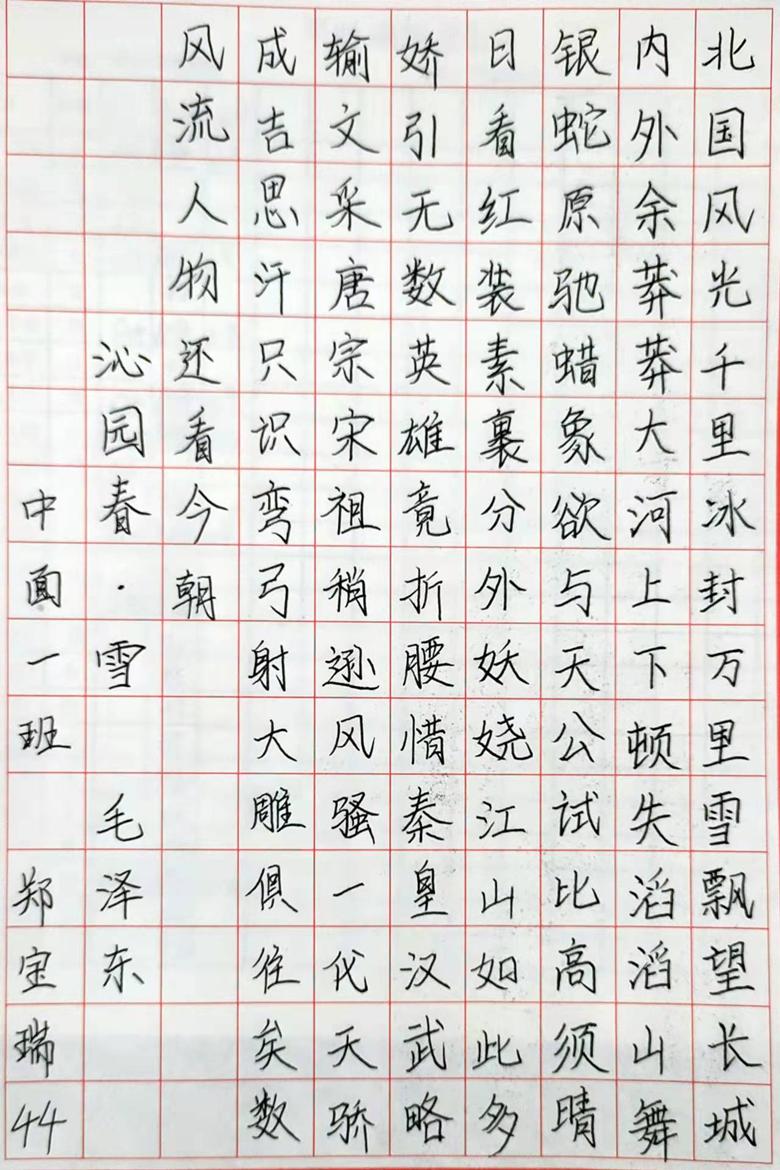 北国风光千里冰封万里雪飘望长城
内外余莽莽大河上下顿失滔滔山舞
银蛇原驰蜡象欲与天公试比高须晴
日看红装素裹分外妖娆江山如此多
娇引无数英雄竟折腰惜秦皇汉武略
输文采唐宗宋祖稍逊风骚一代天骄
成吉思汗只识弯弓射大雕俱往矣数
风流人物还看今朝
沁园春·雪 毛泽东
中面一班 郑宝瑞 44